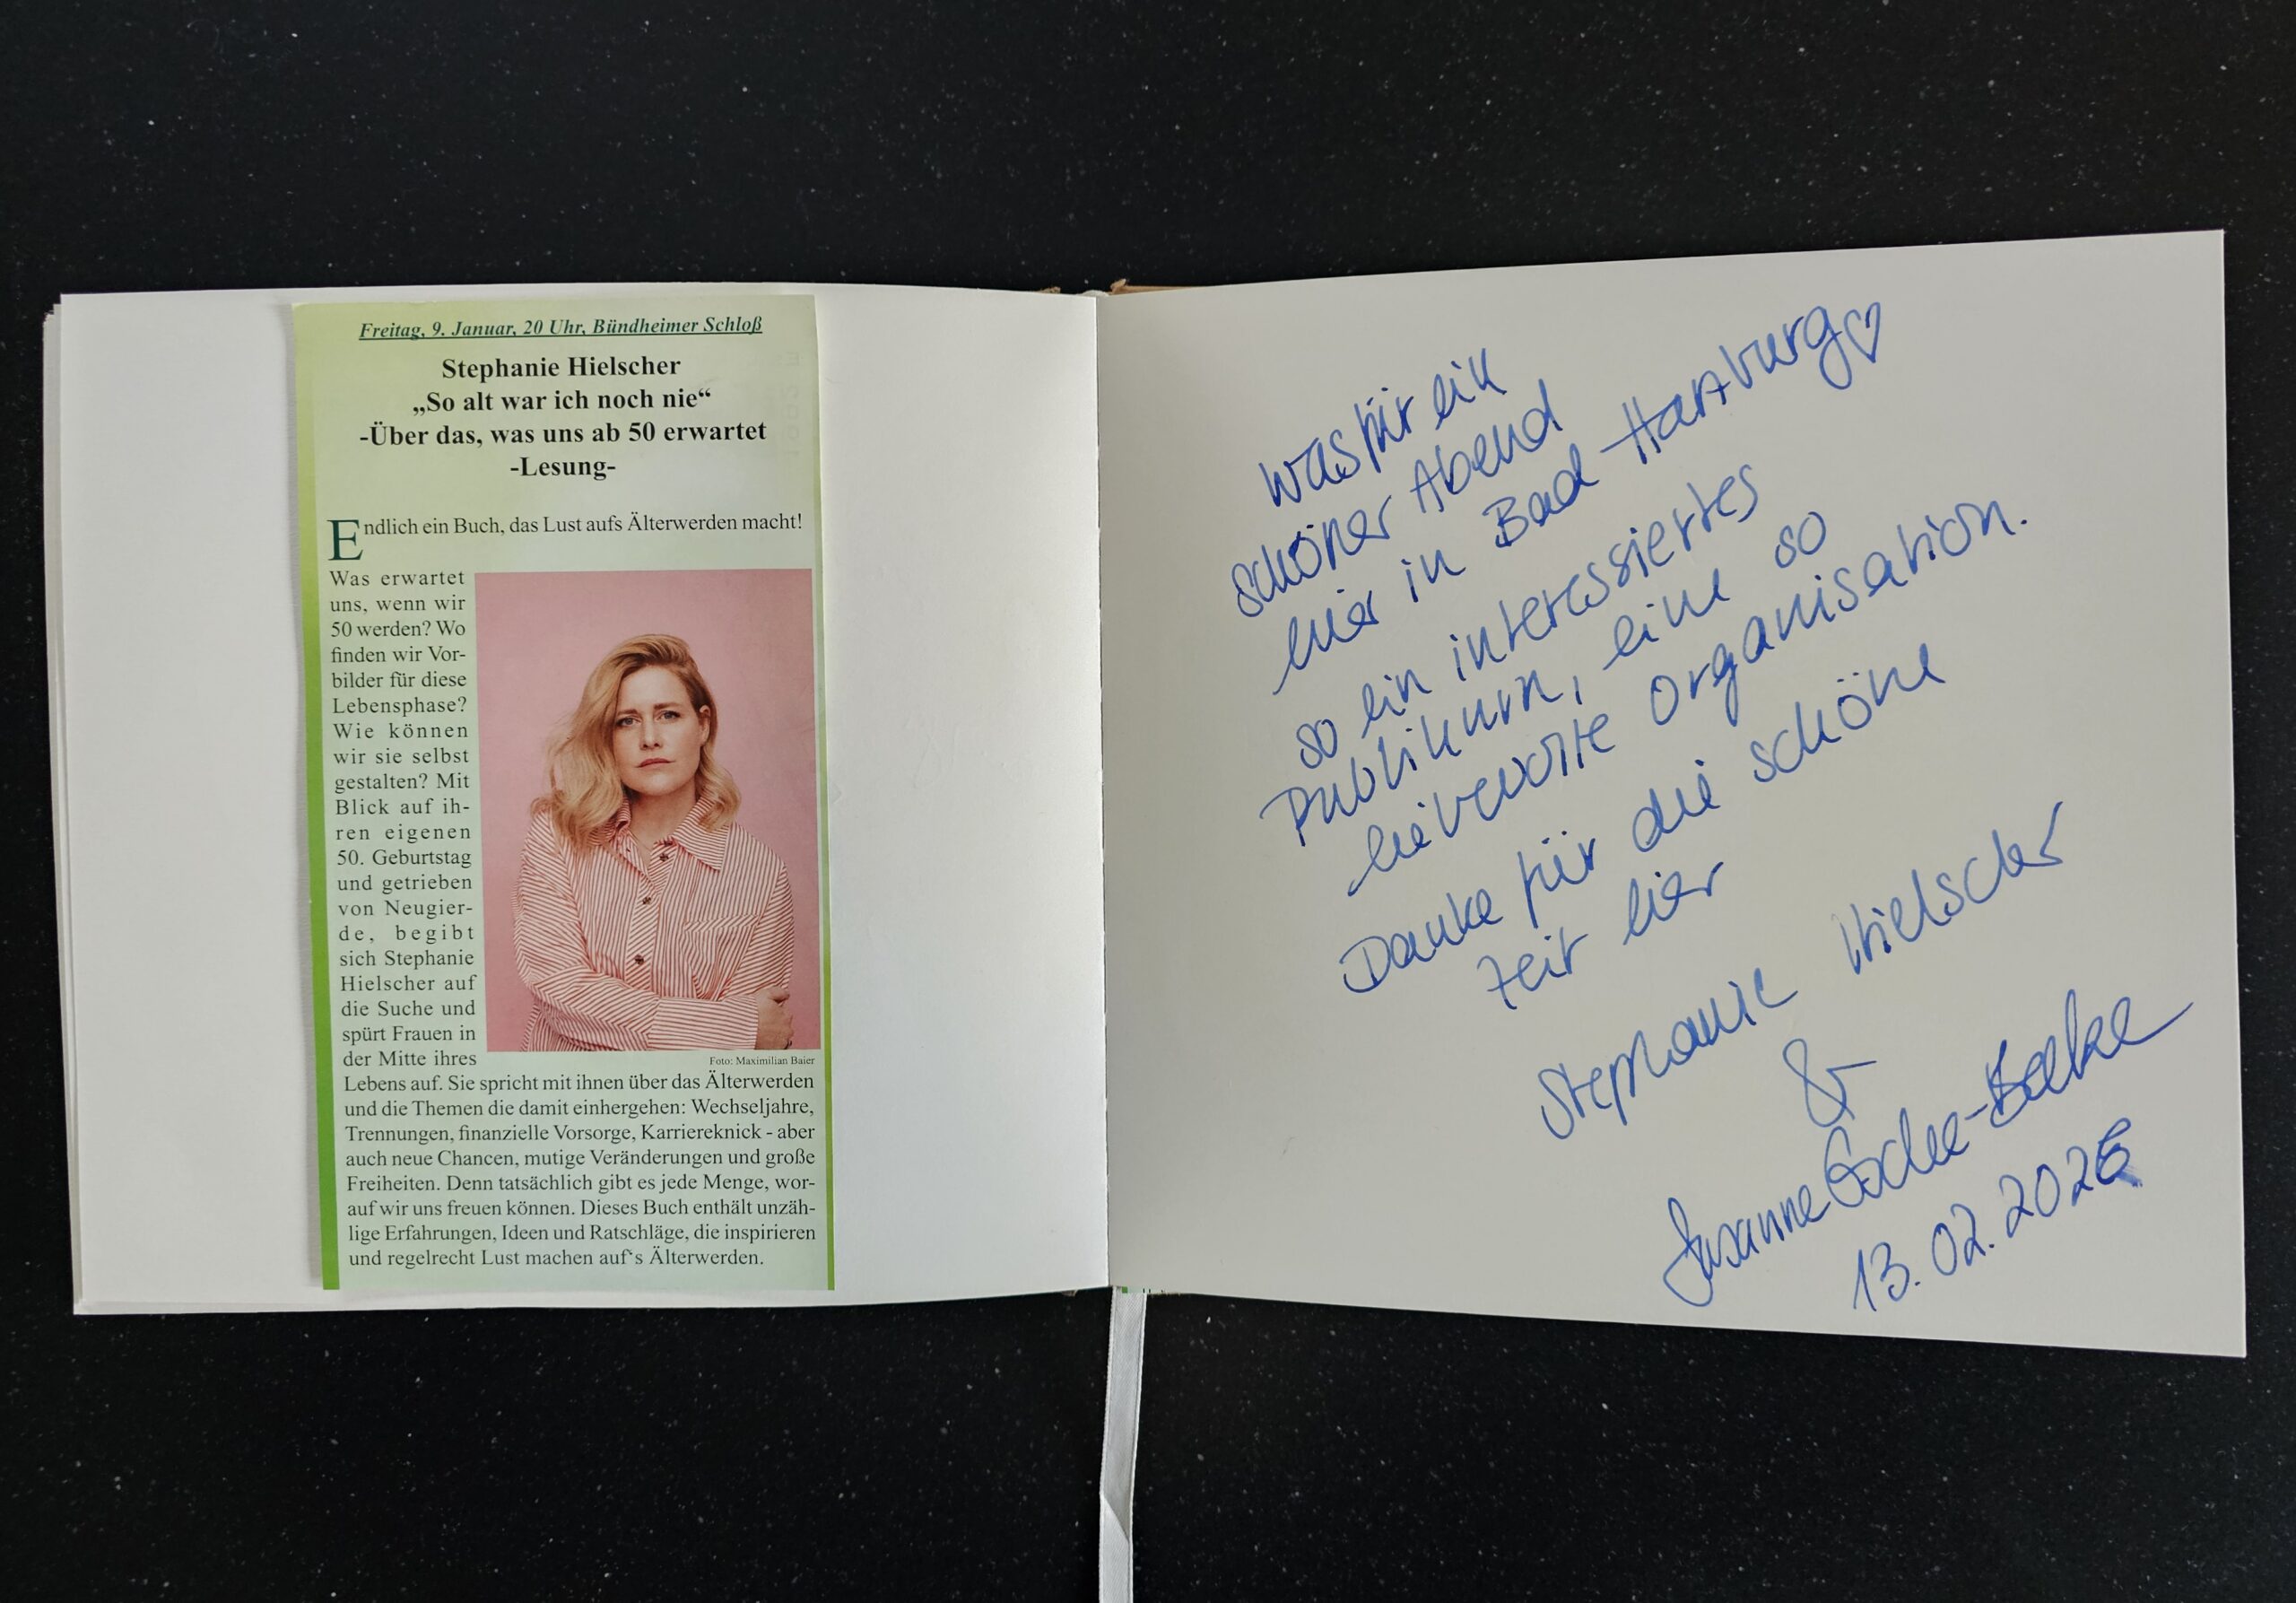 Freitag, 9. Januar, 20 Uhr, Bündheimer Schloß
Stephanie Hielscher
„So alt war ich noch nie“
-Über das, was uns ab 50 erwartet
-Lesung-
Endlich ein Buch, das Lust aufs Älterwerden macht!
Was erwartet
uns, wenn wir
50 werden? Wo
finden wir Vor-
bilder für diese
Lebensphase?
Wie können
wir sie selbst
gestalten? Mit
Blick auf ih-
ren eigenen
50. Geburtstag
und getrieben
von Neugier-
de, begibt
sich Stephanie
Hielscher auf
die Suche und
spürt Frauen in
der Mitte ihres
Foto: Maximilian Baier
Lebens auf. Sie spricht mit ihnen über das Älterwerden
und die Themen die damit einhergehen: Wechseljahre,
Trennungen, finanzielle Vorsorge, Karriereknick - aber
auch neue Chancen, mutige Veränderungen und große
Freiheiten. Denn tatsächlich gibt es jede Menge, wor-
auf wir uns freuen können. Dieses Buch enthält unzäh-
lige Erfahrungen, Ideen und Ratschläge, die inspirieren
und regelrecht Lust machen auf‘s Älterwerden.
Was für ein
schöner Abend
hier in Bad Harzburg ♡
so ein interessiertes
Publikum, eine so
liebevolle Organisation.
Danke für die schöne
Zeit hier
Stephanie Hielscher
&
Susanne
13.02.2026